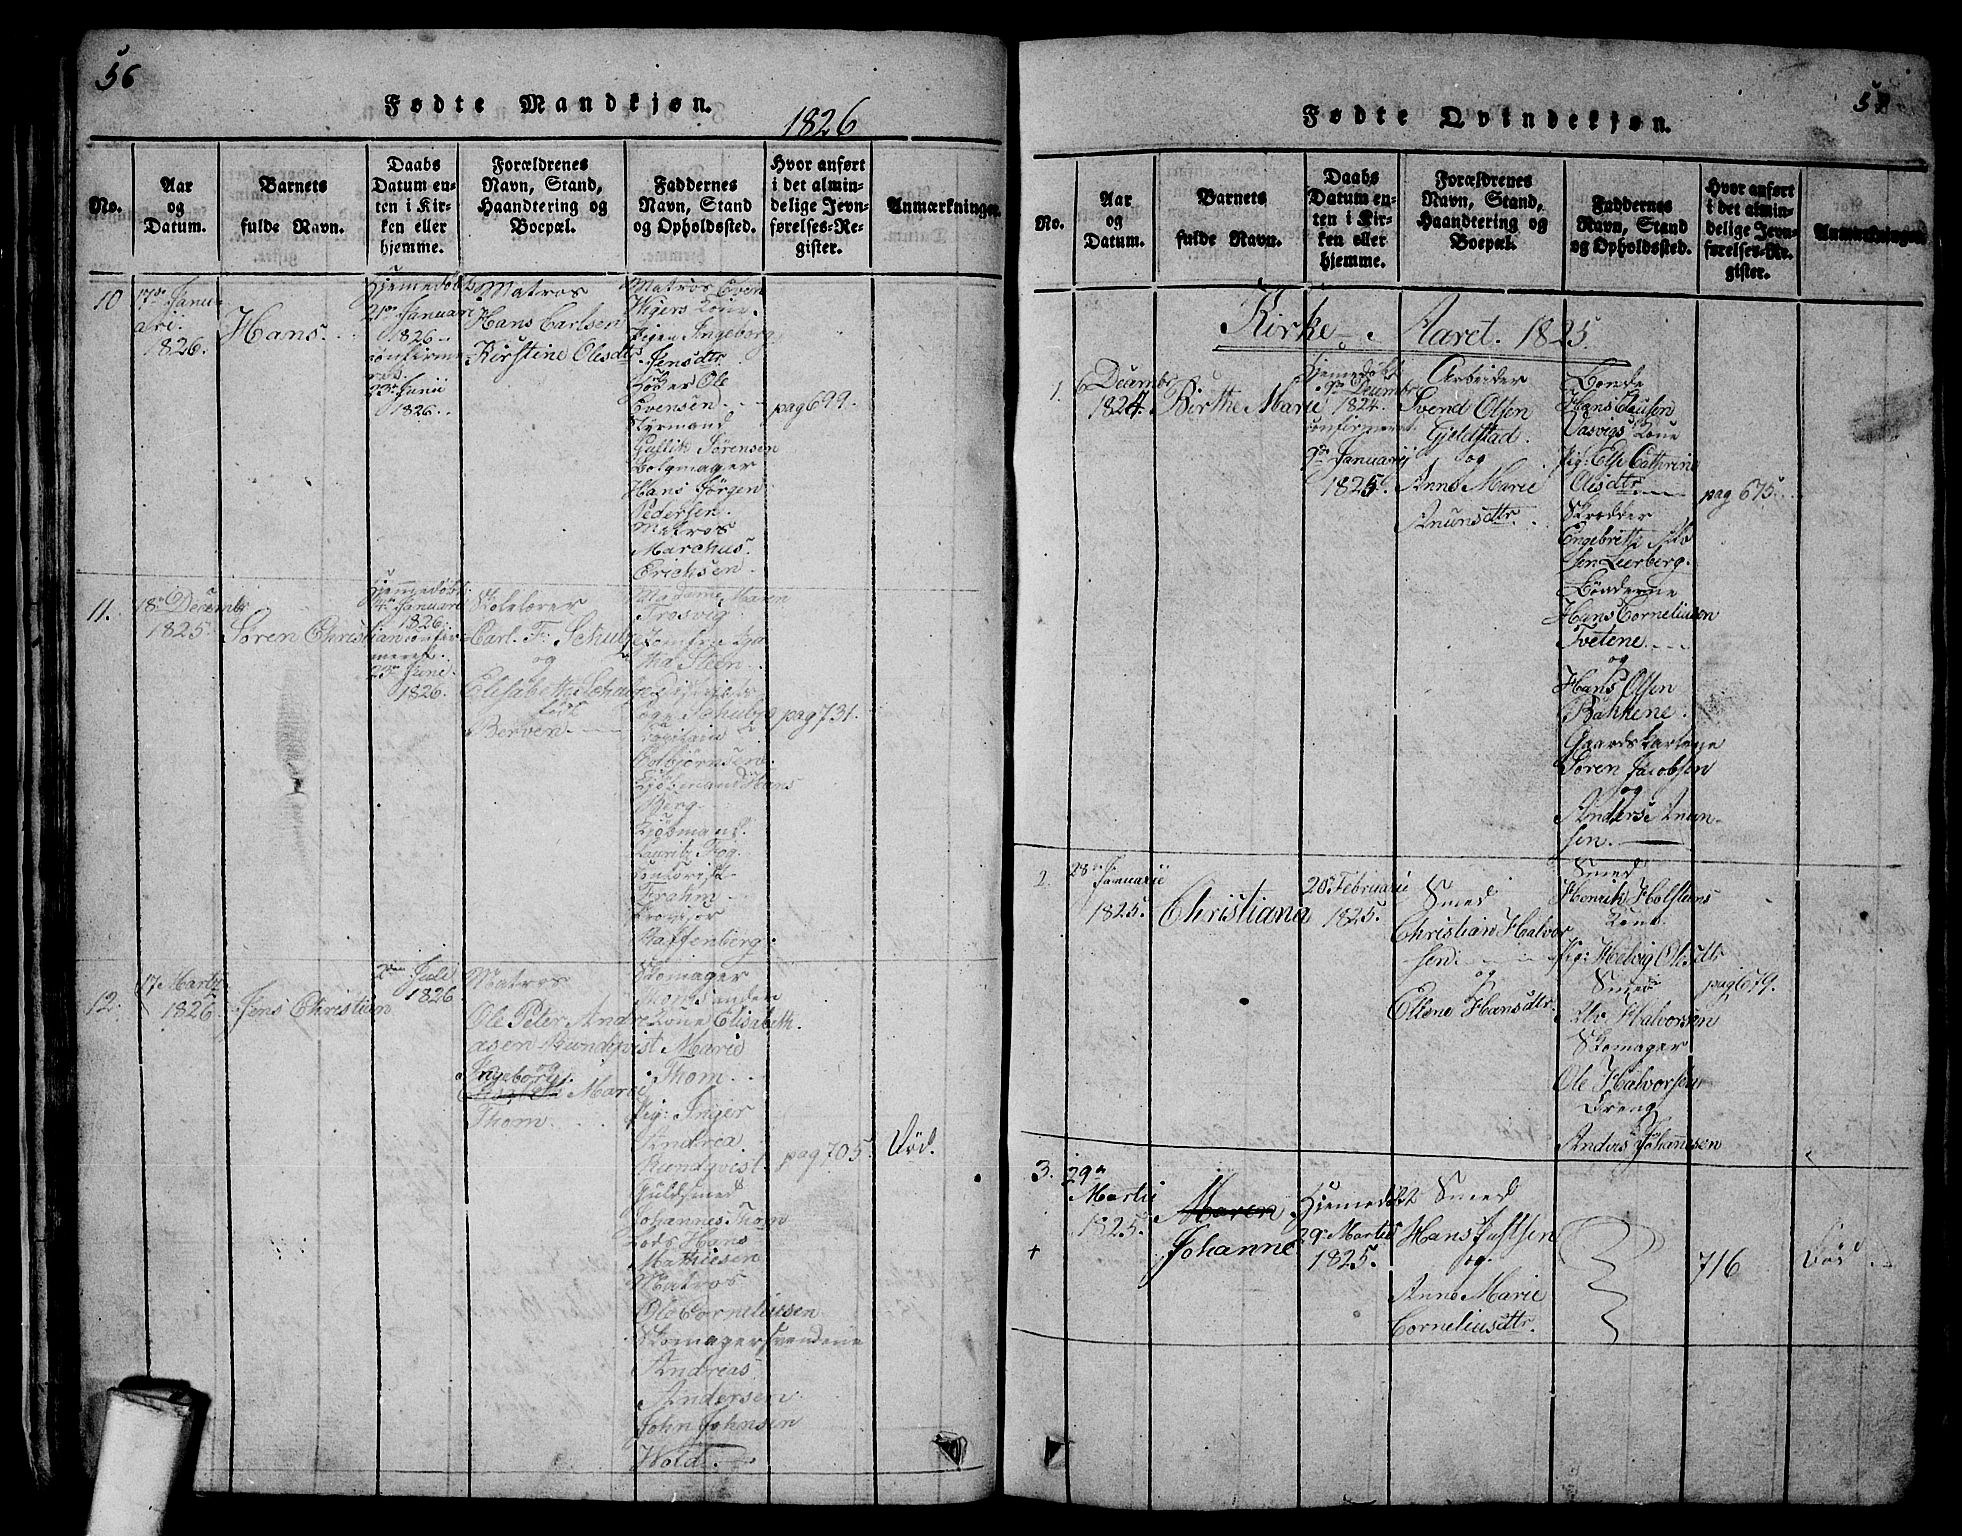 56
Fødte Mandkjøn.
1826
No.
Aar
og
Datum.
Barnets
fulde Navn.
Daabs
Datum en-
ten i Kir-
ken eller
hjemme.
Forældrenes
Navn, Stand,
Haandtering og
Boepæl.
Faddernes
Navn, Stand
og Opholdssted.
Hvor anført
i det almin-
delige Jevn-
førelses-Re-
gister.
Anmærkninger.
10
17de Janu
ari
1826.
Hans
Hjemedøbt
21de Januari
1826
confirme
ret
23de Junii
1826.
Matros
Hans Carlsen
Kirstine Olesdtr
Matros Even
Wigers Kone
Pigen Ingeborg
Jensdtr
Ole
Evensen
Styrmand
Sørensen
Bolgmager
Hans Jørgen
Pedersen.
Matros
Marchus
Erichsen
pag 699.
11.
18de Decembr
1825.
Søren Christian
Hjemmedøbt
Januari
1826.
confir
meret
23de Juni
1826.
Skolelærer
Carl. F. Schultze
og
Elisabeth Schultze
født
Berven.
Madame Maren
Trosvig
Jomfrue
Steen
Capitain
Colbjørnsen
Kjøbmand Hans
Berg
Kjøbmand
Lauritz Fog
Contorist
Frahm
Provisor
Raffenberg.
pag 731.
12.
17 Martz
1826.
Jens Christian
2den Juli
1826
Matros
Ole Peter Andre
asen Rundqvist
og
Ingeborg
Marie
Thom.
Skomager
Thoms
Kone Elisabeth
Marie
Thom
Pig: Inger
Andrea
Rundqvist.
Guldsmed
Johannes Thom
Lods Hans
Mathiesen
Matros
Ole Corneliusen
Skomagersvendene
Andreas
Andersen
John Johnsen
Wold.
pag 705.
Død.
Fødte Qvindekjøn.
No.
Aar
og
Datum.
Barnets
fulde Navn.
Daabs
Datum en-
ten i Kir-
ken eller
hjemme.
Forældrenes
Navn, Stand,
Haandtering og
Boepæl.
Faddernes
Navn, Stand
og Opholdssted.
Hvor anført
i det almin-
delige Jevn-
førelses-Re-
gister.
Anmærkninger.
Kirke Aaret 1825
1.
6 Decembr
1824.
Birthe Marie
Hjemedøbt
9de Decembr
1824.
confirmeret
9de Januarij
1825.
Arbeider
Svend Olsen
Gjeldstad.
og
Anne Marie
Anunsdtr
Bonde
Hans Clausen
Vasvigs Kone
Pig: Else Cathrine
Olesdtr
Skrædder
Engebrith
sen Leerberg.
Bønderne
Hans Corneliusen
Tvetene
og
Hans Olsen
Bakkene.
Gaardskarlene
Søren Jacobsen
og
Anders Anun-
sen.
pag 675.
2.
28de Januarii
1825.
Christiana
20de Februarie
1825.
Smed
Christian Halvor
sen
og
Ellene Hansdtr.
Smed
Henrik Holstens
Kone
Pig: Helvig Olesdtr
Smed
Halvorsen
Skomager
Ole Halvorsen
Dreng
Anders Johannesen
pag 679.
3.
29de
Martii
1825.
+
Maren
Johanne
Hjemedøbt
29de Martii
1825.
Smed
Hans Justsen
og
Anne Marie
Corneliusdtr.
716
Død